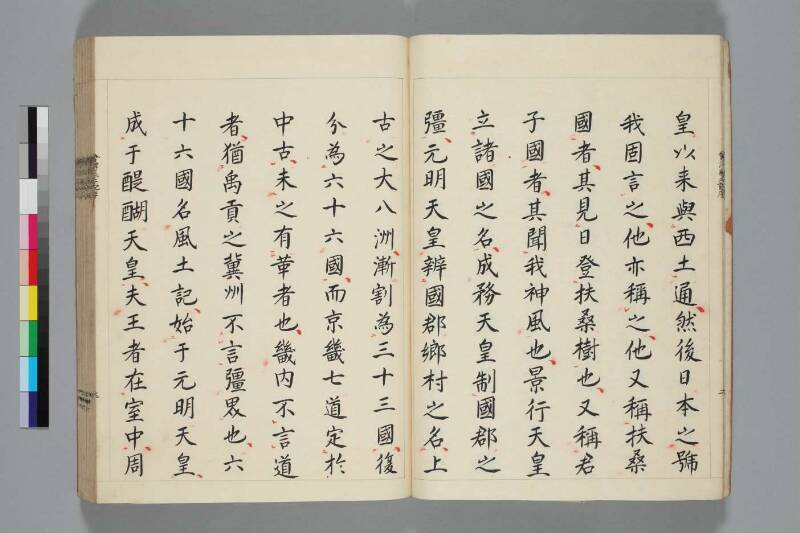 皇以来與西土通然後日本之號
我固言之他亦稱之他又稱扶桑
國者其見日登扶桑樹也又稱君
子國者其聞我神風也景行天皇
立諸國之名成務天皇制國郡之
彊元明天皇辨國郡鄉村之名上
古之大八洲漸割為三十三國復
分為六十六國而京畿七道定於
中古未之有革者也畿内不言道
者猶禹貢之冀州不言彊界也六
十六國名風土記始于元明天皇
成于醍醐天皇夫王者在室中周